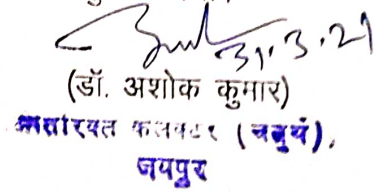 31.3.21
(डॉ. अशोक कुमार)
अतिरिक्त कलक्टर (चतुर्थ),
जयपुर